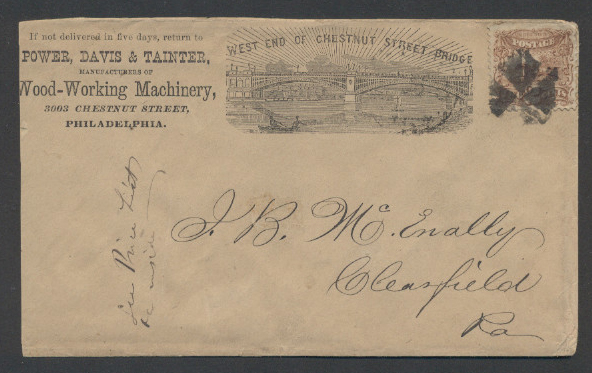 If not delivered in five days, return to
POWER, DAVIS & TAINTER,
MANUFACTURERS OF
Wood-Working Machinery,
3003 CHESTNUT STREET,
PHILADELPHIA.
WEST END OF CHESTNUT STREET BRIDGE
POSTAGE
J. B. McEnally
Clearfield
Pa
See Price List